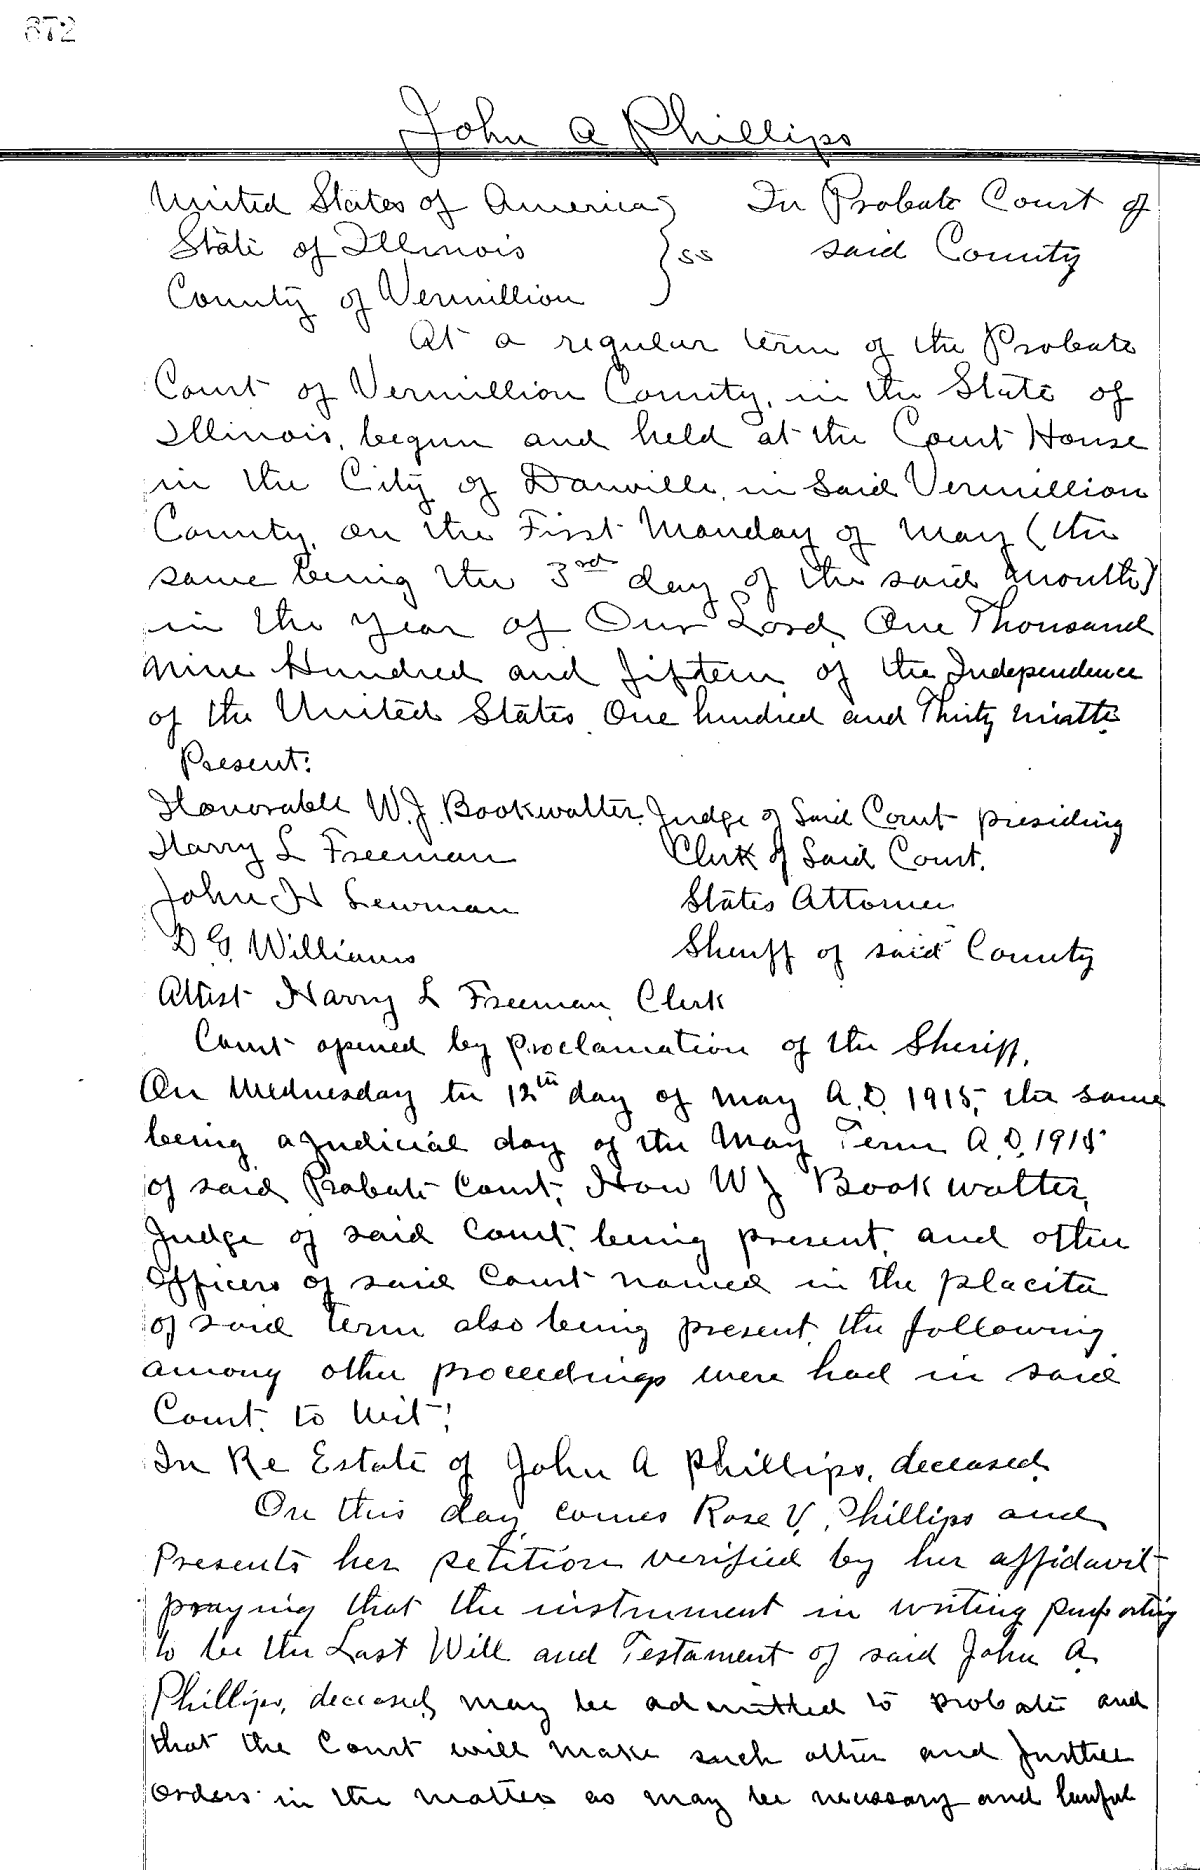 672
John A Phillips
United States of America } In Probate Court of
State of Illinois } ss said County
County of Vermillion }
At a regular term of the Probate
Court of Vermillion County, in the State of
Illinois, begun and held at the Court House
in the City of Danville, in Said Vermillion
County, on the First Monday of May (the
same being the 3rd day of the said month)
in the year of Our Lord, One Thousand
Nine Hundred and fifteen of the Independence
of the United States One hundred and Thirty
Present:
Honorable W. J. Bookwalter. Judge of Said Court presiding
Harry L Freeman Clerk of Said Court.
John H Lewman States Attorney
D G. Williams Sheriff of said County
Attest Harry L Freeman, Clerk
Court opened by Proclamation of the Sheriff.
On Wednesday the 12th day of May A.D. 1915, the same
being a judicial day of the May Term A.D. 1915
of said Probate Court, Hon W J Bookwalter,
Judge of said Court, being present, and other
Officers of said Court named in the placita
of said term also being present, the following
among other proceedings were had in said
Court, to wit:
In Re Estate of John A Phillips, deceased.
On this day comes Rose V. Phillips and
Presents her petition verified by her affidavit
praying that the instrument in writing purporting
to be the Last Will and Testament of said John A.
Phillips, deceased, may be admitted to probate and
that the Court will make such other and further
orders in the matter as may be necessary and lawful